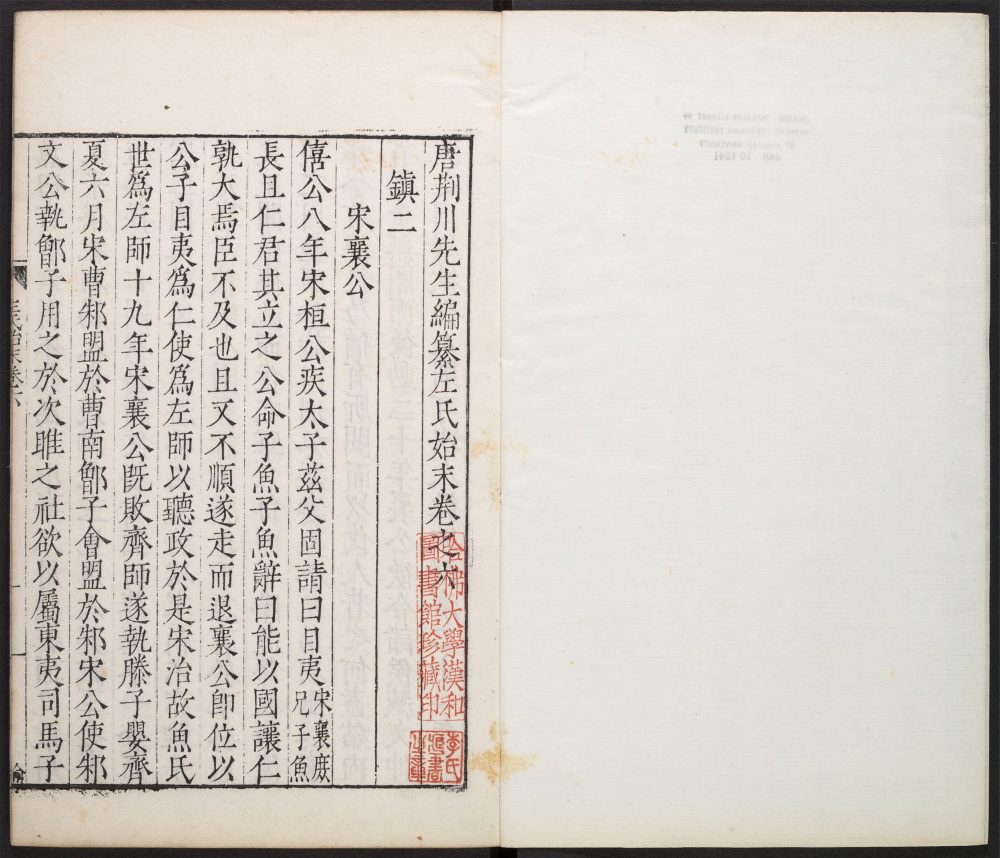 唐荆川先生編纂左氏始末卷之六
鎮二
宋襄公
僖公八年宋桓公疾太子茲父固請曰目夷宋襄庶兄子魚
長且仁君其立之公命子魚子魚辭曰能以國讓仁
孰大焉臣不及也且又不順遂走而退襄公卽位以
公子目夷爲仁使爲左師以聽政於是宋治故魚氏
世爲左師十九年宋襄公旣敗齊師遂執滕子嬰齊
夏六月宋曹邾盟於曹南鄫子會盟於邾宋公使邾
文公執鄫子用之於次睢之社欲以屬東夷司馬子
左氏始末卷六
一
哈佛大學漢和
圖書館珍藏印
JAN 10 1941